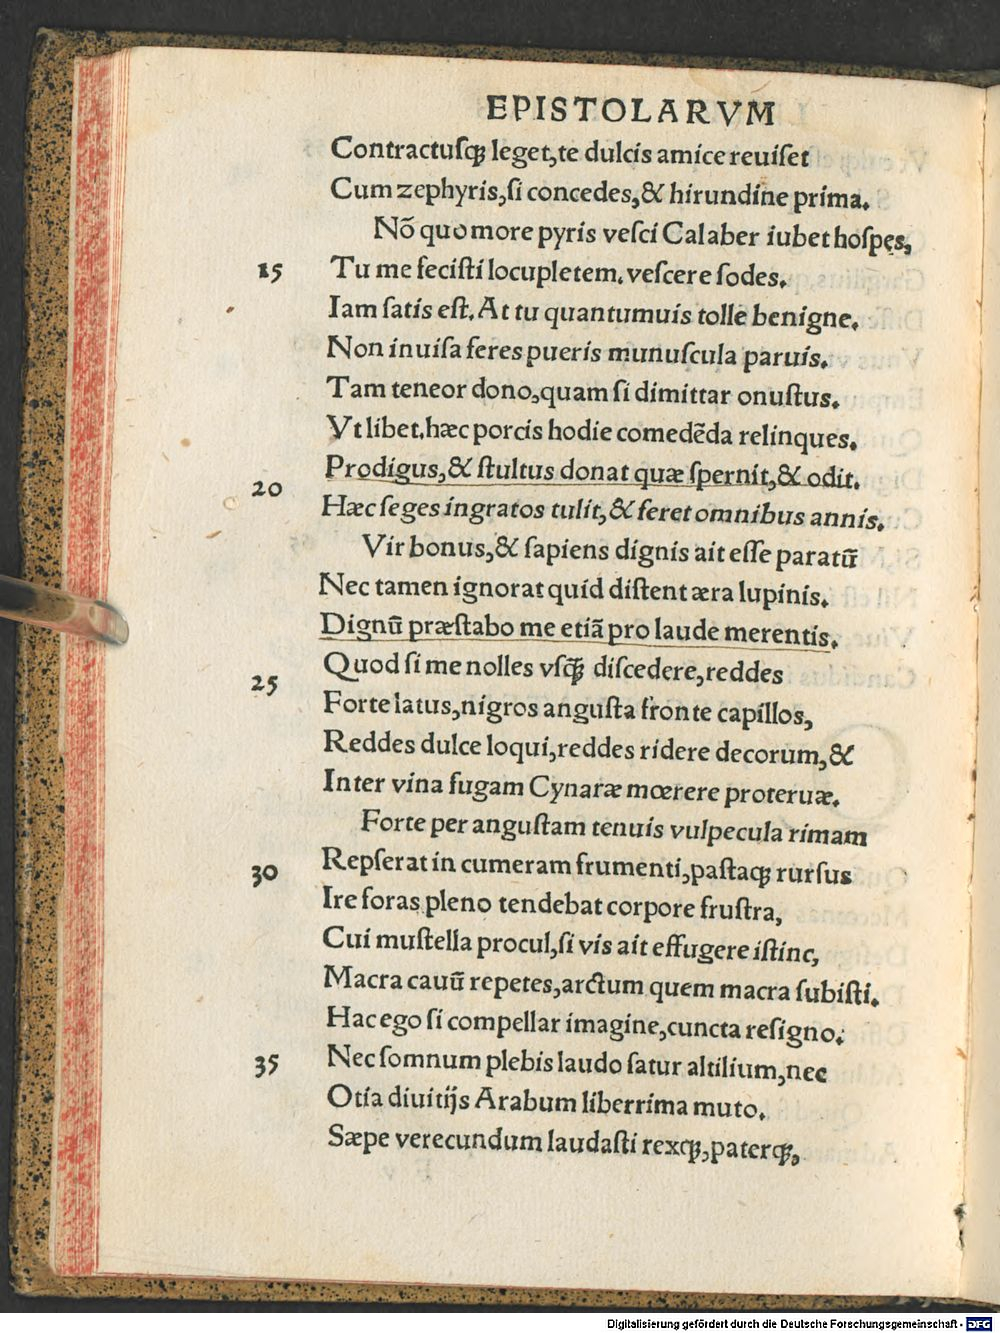 EPISTOLARVM
Contractuſqꝫ leget,te dulcis amice reuiſet
Cum zephyris,ſi concedes,& hirundine prima.
Nõ quo more pyris veſci Calaber iubet hoſpes,
15 Tu me feciſti locupletem. veſcere ſodes.
Iam ſatis eſt. At tu quantumuis tolle benigne.
Non inuiſa feres pueris munuſcula paruis.
Tam teneor dono,quam ſi dimittar onuſtus.
Vt libet.hæc porcis hodie comedẽda relinques.
20 Prodigus,& ſtultus donat quæ ſpernit,& odit.
Hæc ſeges ingratos tulit,& feret omnibus annis.
Vir bonus,& ſapiens dignis ait eſſe paratũ
Nec tamen ignorat quid diſtent æra lupinis.
Dignũ præſtabo me etiã pro laude merentis.
25 Quod ſi me nolles vſqꝫ diſcedere,reddes
Forte latus,nigros anguſta fronte capillos,
Reddes dulce loqui,reddes ridere decorum,&
Inter vina fugam Cynaræ mœrere proteruæ.
Forte per anguſtam tenuis vulpecula rimam
30 Repſerat in cumeram frumenti,paſtaqꝫ rurſus
Ire foras pleno tendebat corpore fruſtra,
Cui muſtella procul,ſi vis ait effugere iſtinc,
Macra cauũ repetes,arctum quem macra ſubiſti.
Hac ego ſi compellar imagine,cuncta reſigno.
35 Nec ſomnum plebis laudo ſatur altilium,nec
Otia diuitijs Arabum liberrima muto.
Sæpe verecundum laudaſti rexqꝫ,paterqꝫ,
Digitalisierung gefördert durch die Deutsche Forschungsgemeinschaft - DFG